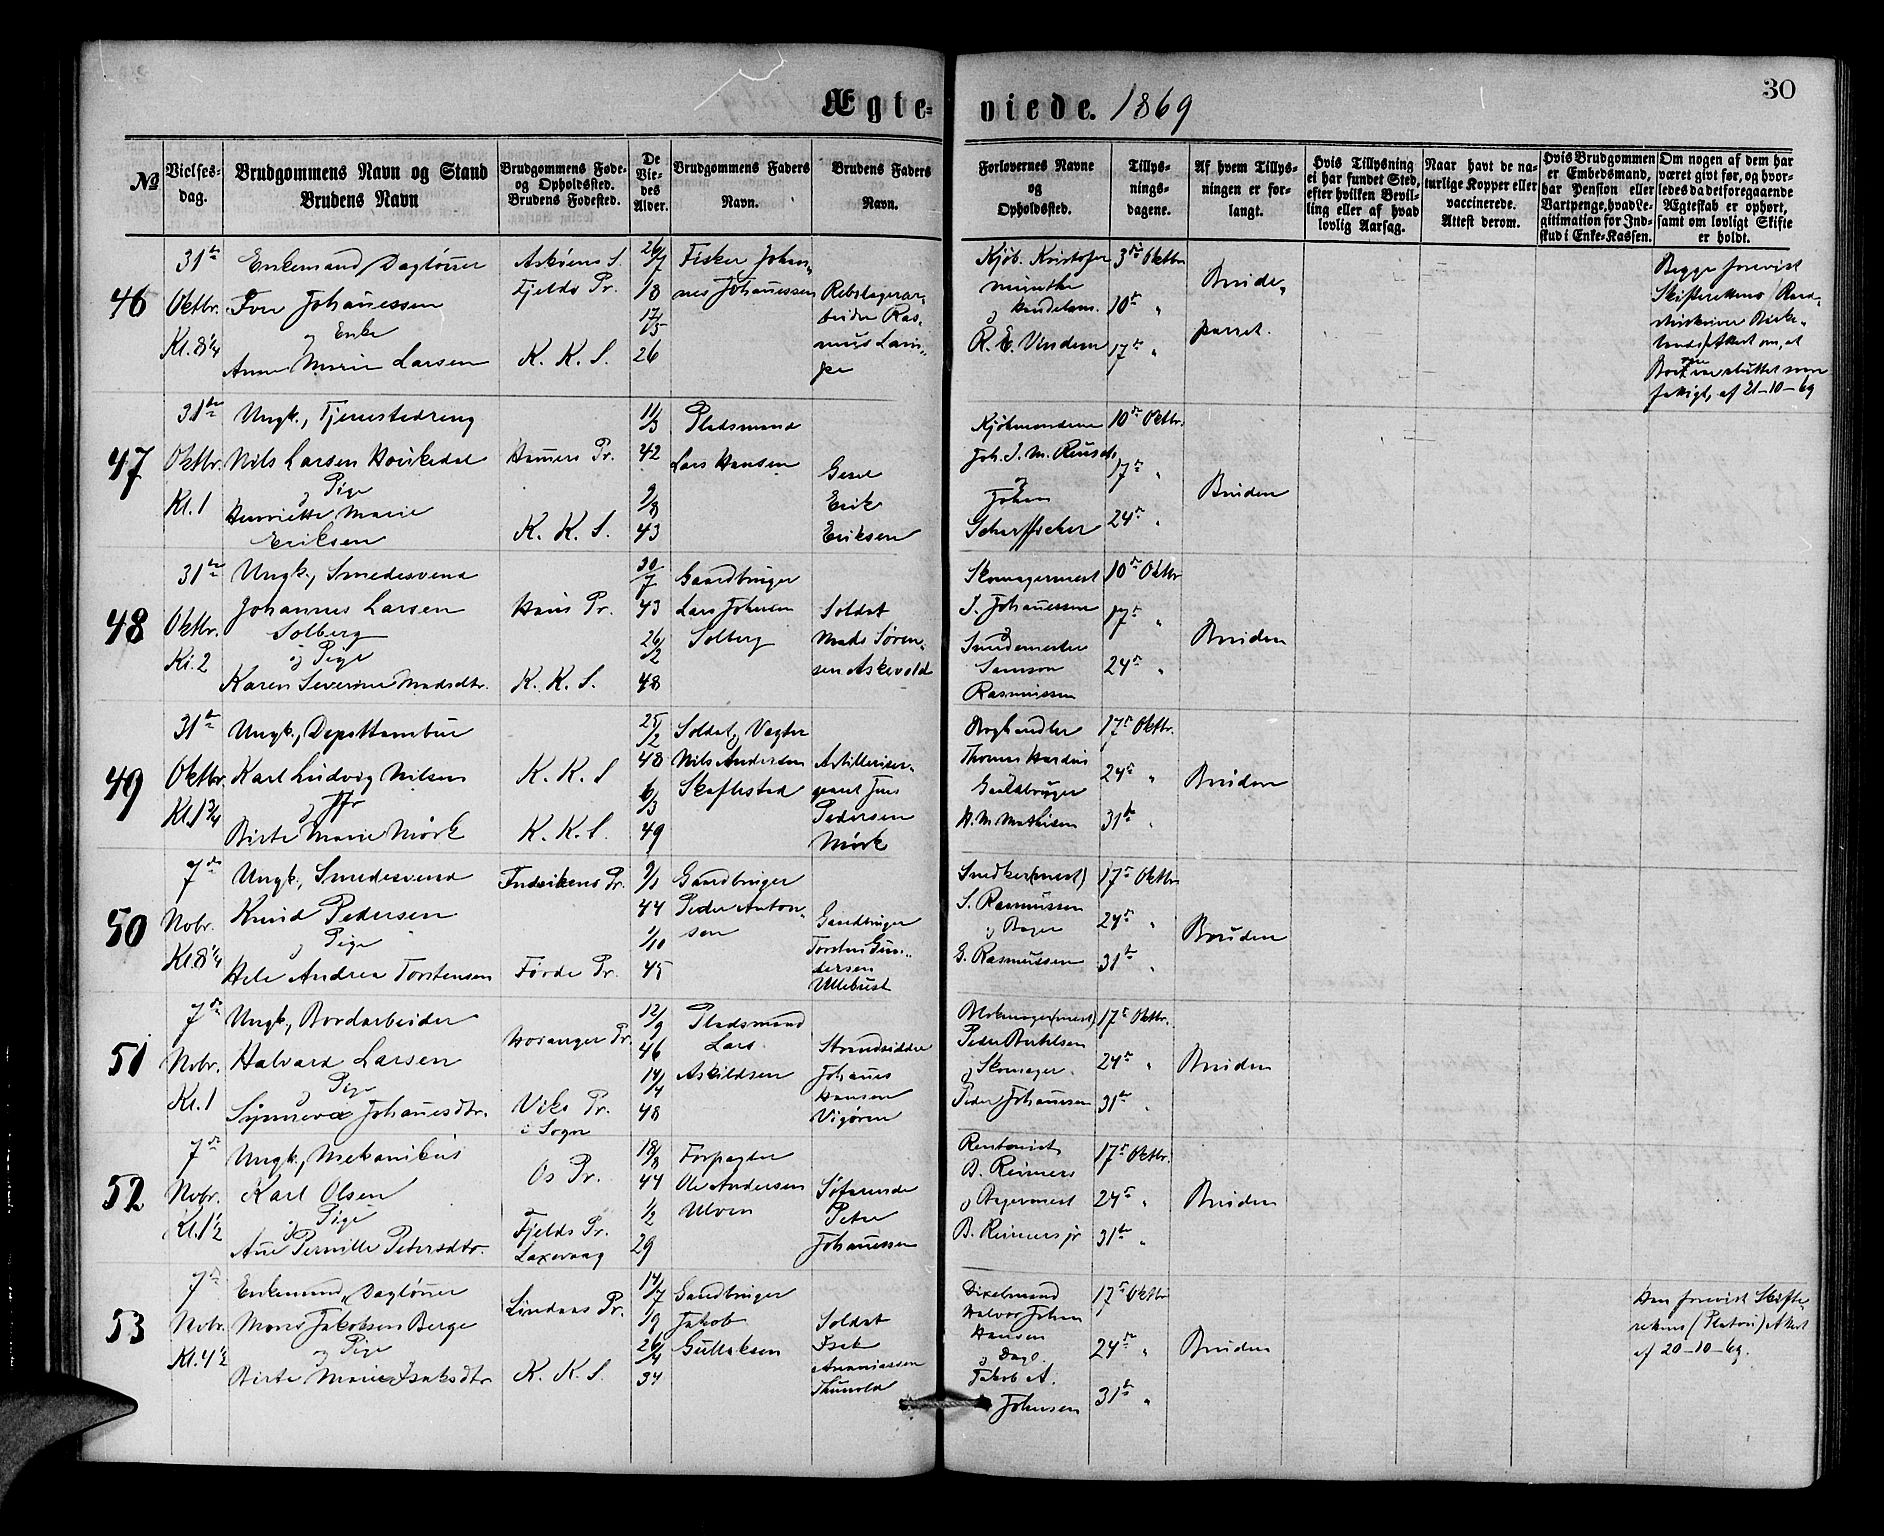 Ægte-
viede. 1869
30
No
Vielses-
dag.
Brudgommens Navn og Stand
Brudens Navn
Brudgommens Føde-
og Opholdssted.
Brudens Fødested.
De
Vie-
des
Alder.
Brudgommens Faders
Navn.
Brudens Faders
Navn.
Forlovernes Navne
og
Opholdssted.
Tillys-
nings-
dagene.
Af hvem Tillys-
ningen er for-
langt.
Hvis Tillysning
ei har fundet Sted,
efter hvilken Bevil-
ling eller af hvad
lovlig Aarsag.
Naar havt de na-
turlige Kopper eller
vaccinerede.
Attest derom.
Hvis Brudgommen
er Embedsmand,
har Pension eller
Vartpenge, hvad Le-
gitimation for Ind-
skud i Enke-Kassen.
Om nogen af dem har
været givt før, og hvor-
ledes da det foregaaende
Ægteskab er ophørt,
samt om lovligt Skifte
er holdt.
46
31te
Oktbr.
Kl. 8 1/4
Enkemand, Dagløner
Iver Johannessen
og Enke
Anne Marie Larsen
Askøens S.
Fjelds Pr.
K. K. S.
26/7
18
17/5
26
Fisker Johan-
nes Johannessen
Rebslagerar-
beider Ras-
mus
Kjøb. Kristofer
10de "
17de "
3die Oktbr
R. E. Vindem
Brude-
parret.
Begge forevist
Skifterettens
Attest om, at
Boerne var sluttet som
fattigt, af 21-10-69
47
31te
Oktbr.
Kl. 1
Ungk., Tjenestedreng
Nils Larsen Houkedal
og Pige
Henriette Marie
Eriksen
Hammers Pr.
K. K. S.
11/3
42
9/8
43
Pladsmand
Lars Hansen
Gesel
Erik
Eriksen
Kjøbmændene
Joh. I. M. Reusch
og
Johan
10de Oktbr.
17de "
24de "
Bruden
48
31te
Oktbr.
Kl. 2
Ungk., Smedesvend
Johannes Larsen
Solberg
og Pige
Karen Severine Madsdtr.
Haus Pr.
K. K. S.
30/7
43
26/2
48
Gaardbruger
Lars Johnsen
Solberg
Soldat
Mads Søren-
sen Askevold
Skomagermest
I. Johannessen
og
Smedemester
Samson
Rasmussen
10de Oktbr
17de "
24de "
Bruden
49
31te
Oktbr.
Kl. 1 3/4
Ungk., Depottambur
Karl Ludvig Nilsen
og Jfr
Birte Marie Mörk
K. K. S
K. K. S.
25/2
48
6/3
49
Soldat, Vagter
Nils Andersen
Skaflestad
Artilleriser-
geant Jens
Pedersen
Mörk
Thomas
Gaardbruger
H. M. Mathisen
17de Oktbr.
24de "
31te "
Bruden
50
7de
Nobr.
Kl. 8 1/4
Ungk., Smedesvend
Knud Pedersen
og Pige
Hele Andrea Torstensen
Indvikens Pr.
Førde Pr.
9/1
44
1/10
45
Gaardbruger
Peder Anton-
sen
Gaardbruger
Torsten Gun-
dersen
Ullebust
Snedker(mest)
S. Rasmussen
og Bager
G. Rasmussen
17de Oktbr
24de "
31te "
Bruden
51
7de
Nobr.
Kl. 1
Ungk., Bordarbeider
Halvard Larsen
og Pige
Synneva Johannesdtr.
Hosanger Pr.
Viks Pr.
i Sogn
12/9
46
14/4
48
Pladsmand
Lars
Askildsen
Strandsidder
Johannes
Hansen
Vigören
Blokmager(mest)
Peder Berthelsen
og Skomager
Peder Johannesen
17de Oktbr.
24de "
31te "
Bruden
52
7de
Nobr.
Kl. 1 1/2
Ungk., Mekanikus
Karl Olsen
og Pige
Ane Pernille Petersdtr.
Os Pr.
Fjelds Pr.
Laxevaag
18/8
44
1/2
29
Forpagter
Ole Andersen
Ulven
Søfarende
Peter
Johannessen
Rentenist
B. Reimers
og Bagermest
B. Reimers jr
17de Oktbr.
24de "
31te "
Bruden
53
7de
Nobr.
Kl. 4 1/2
Enkemand, Dagløner
Mons Jakobsen Berge
og Pige
Birte Marie Isaksdtr
Lindaas Pr.
K. K. S.
14/7
19
26/4
34
Gaardbruger
Jakob
Gullaksen
Soldat
Isak
Ananiassen
Thunold
Dixelmand
Halvor Johan
Hansen
og Dagl.
Jakob A.
Johnsen
17de Oktbr
24de "
31te "
Bruden
Han forevist Skifte-
rettens (Platou) Attest
af 20-10-69.